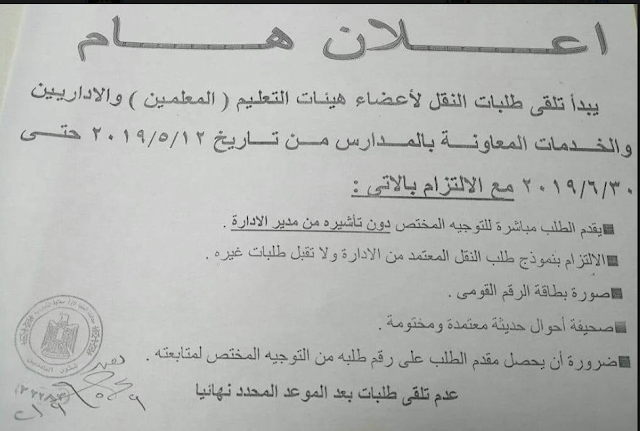 اعـــلان هـــام
يبدأ تلقى طلبات النقل لأعضاء هيئات التعليم ( المعلمين ) والاداريين
والخدمات المعاونة بالمدارس من تاريخ ٢٠١٩/٥/١٢ حتى
٢٠١٩/٦/٣٠ مع الالتزام بالاتى :
■يقدم الطلب مباشرة للتوجيه المختص دون تأشيره من مدير الادارة .
■الالتزام بنموذج طلب النقل المعتمد من الادارة ولا تقبل طلبات غيره .
■صورة بطاقة الرقم القومى .
■صحيفة أحوال حديثة معتمدة ومختومة .
■ضرورة أن يحصل مقدم الطلب على رقم طلبه من التوجيه المختص لمتابعته .
عدم تلقى طلبات بعد الموعد المحدد نهائيا